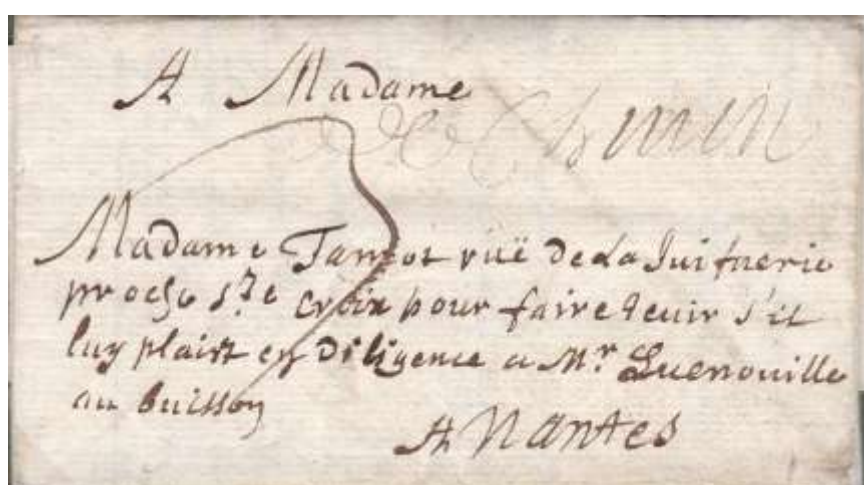 A Madame
de Chinin
Madame Tanrot ruë de La Juifuerie
proche Ste Croix pour faire tenir s'il
luy plaist en diligence a Mr Quenouille
au buisson
A Nantes